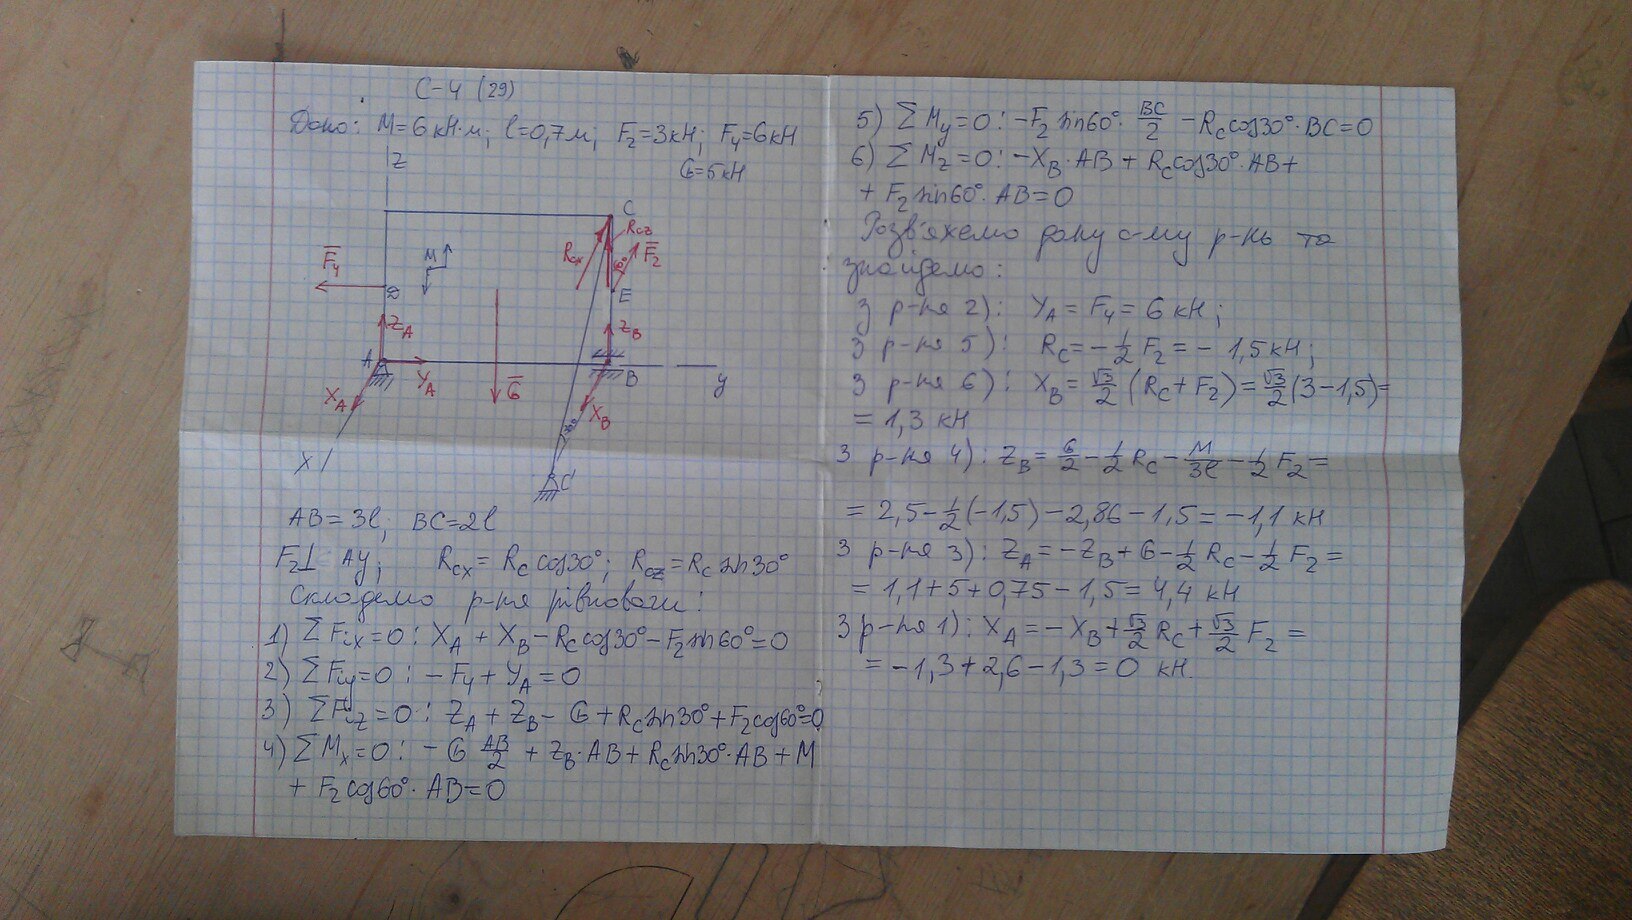 С-4 (29)
Дано: M=6 кН·м; l=0,7м; F₂=3кН; F₄=6кН
G=5кН
z
C
R_cz
R_cx
F̅₂
60°
F̅₄
M
D
E
z_A
z_B
A
Y_A
G̅
B
y
X_A
X_B
30°
X
C'
AB=3l; BC=2l
F₂⊥ Ay; R_cx = R_c cos30°; R_cz = R_c sin30°
Складемо р-ня рівноваги:
1) ΣFix=0 : X_A + X_B − R_c cos30° − F₂ sin60° = 0
2) ΣFiy=0 : −F₄ + Y_A = 0
3) ΣFiz=0 : Z_A + Z_B − G + R_c sin30° + F₂ cos60° = 0
4) ΣM_x=0 : −G AB/2 + Z_B·AB + R_c sin30°·AB + M
+ F₂ cos60°·AB = 0
5) ΣM_y=0 : −F₂ sin60°· BC/2 − R_c cos30°·BC = 0
6) ΣM_z=0 : −X_B·AB + R_c cos30°·AB +
+ F₂ sin60°·AB = 0
Розв'яжемо дану с-му р-нь та
знайдемо:
З р-ня 2): Y_A = F₄ = 6 кН;
З р-ня 5): R_c = −1/2 F₂ = −1,5 кН;
З р-ня 6): X_B = √3/2 (R_c + F₂) = √3/2 (3−1,5) =
= 1,3 кН
З р-ня 4): Z_B = G/2 − 1/2 R_c − M/3l − 1/2 F₂ =
= 2,5 − 1/2 (−1,5) − 2,86 − 1,5 = −1,1 кН
З р-ня 3): Z_A = −Z_B + G − 1/2 R_c − 1/2 F₂ =
= 1,1 + 5 + 0,75 − 1,5 = 4,4 кН
З р-ня 1): X_A = −X_B + √3/2 R_c + √3/2 F₂ =
= −1,3 + 2,6 − 1,3 = 0 кН.